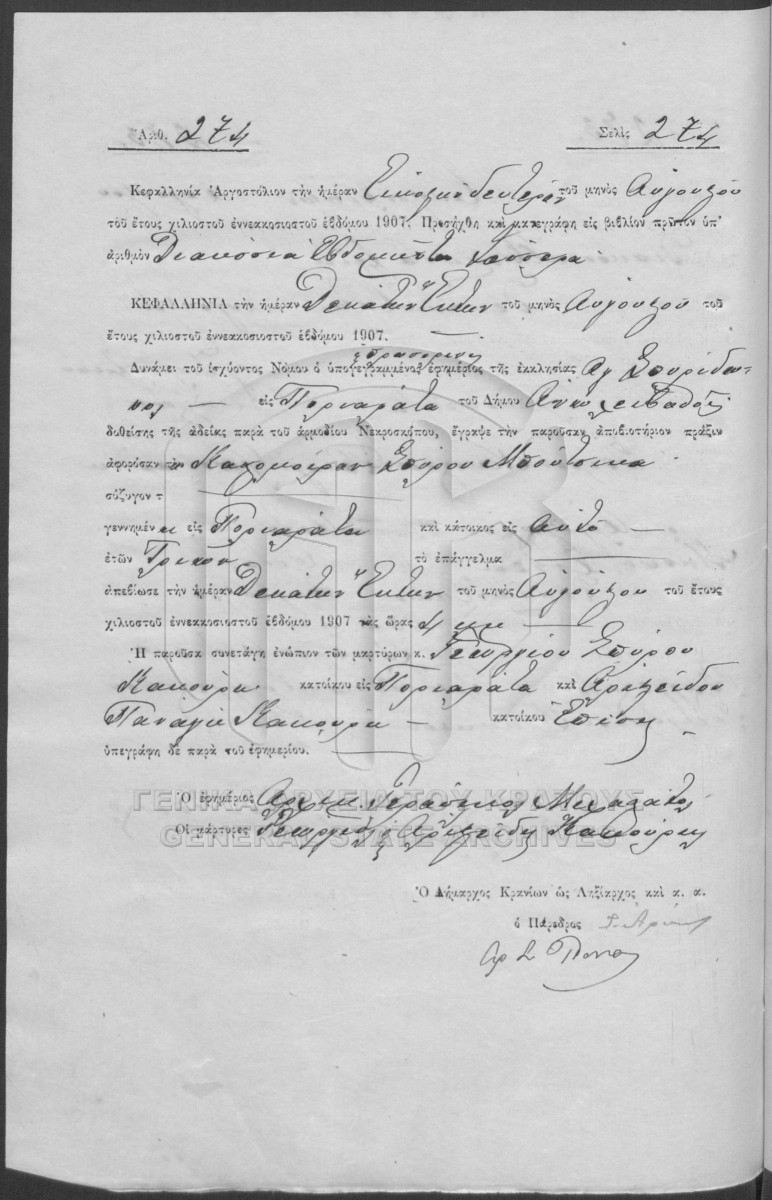 Ἀριθ. 274 Σελὶς 274
Κεφαλληνία Ἀργοστόλιον τὴν ἡμέραν Εἰκοστὴν δευτέραν τοῦ μηνὸς Αὐγούστου
τοῦ ἔτους χιλιοστοῦ ἐννεακοσιοστοῦ ἑβδόμου 1907. Προσήχθη καὶ κατεγράφη εἰς βιβλίον πρῶτον ὑπ'
ἀριθμὸν Διακόσια Ἑβδομῆντα τέσσερα
ΚΕΦΑΛΛΗΝΙΑ τὴν ἡμέραν Δεκάτην Ἕκτην τοῦ μηνὸς Αὐγούστου τοῦ
ἔτους χιλιοστοῦ ἐννεακοσιοστοῦ ἑβδόμου 1907.
Δυνάμει τοῦ ἰσχύοντος Νόμου ὁ ὑπογεγραμμένος ἐφημέριος τῆς ἐκκλησίας Αγ Σπυρίδω-
νος εἰς Πορναράτα τοῦ Δήμου
δοθείσης τῆς ἀδείας παρὰ τοῦ ἁρμοδίου Νεκροσκόπου, ἔγραψε τὴν παροῦσαν ἀποβιωτήριον πρᾶξιν
ἀφορῶσαν τὴν Σπύρου
σύζυγον τ
γεννημέν η εἰς Πορναράτα καὶ κάτοικος εἰς Αὐτό
ἐτῶν τὸ ἐπάγγελμα
ἀπεβίωσε τὴν ἡμέραν Δεκάτην Ἕκτην τοῦ μηνὸς Αὐγούστου τοῦ ἔτους
χιλιοστοῦ ἐννεακοσιοστοῦ ἑβδόμου 1907 τὰς ὥρας 4
Ἡ παροῦσα συνετάγη ἐνώπιον τῶν μαρτύρων κ. Γεωργίου Σπύρου
Κακούρη κατοίκου εἰς Πορναράτα καὶ Ἀριστείδου
Παναγῆ Κακούρη κατοίκου Ἐπίσης
ὑπεγράφη δὲ παρὰ τοῦ ἐφημερίου.
Ὁ ἐφημέριος Ἀρχιμ. Γεράσιμος
Οἱ μάρτυρες Γεώργιος Ἀριστείδης Κακούρης
ΓΕΝΙΚΑ ΑΡΧΕΙΑ ΤΟΥ ΚΡΑΤΟΥΣ
GENERAL STATE ARCHIVES
Ὁ Δήμαρχος Κρανίων ὡς Ληξίαρχος καὶ κ. α.
ὁ Πάρεδρος